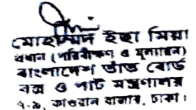 মোহাম্মদ ইছা মিয়া
প্রধান (পরিবীক্ষণ ও মূল্যায়ন)
বাংলাদেশ তাঁত বোর্ড
বস্ত্র ও পাট মন্ত্রণালয়
কাওরান বাজার, ঢাকা।